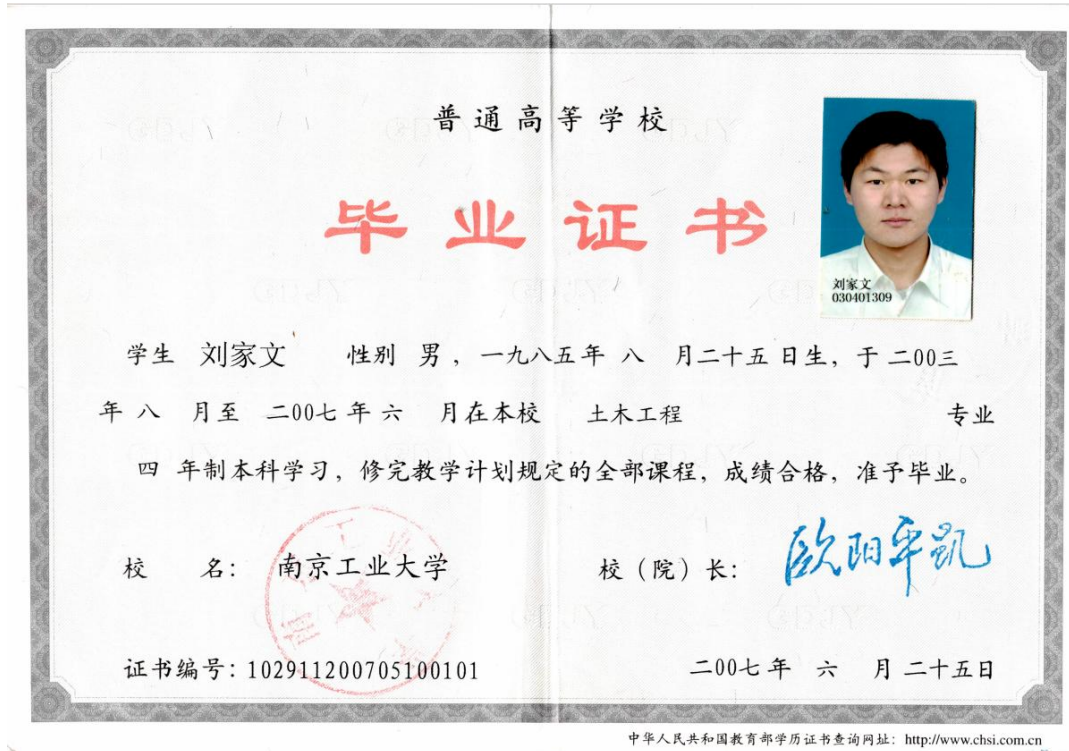 普通高等学校
毕业证书
刘家文
030401309
学生 刘家文 性别 男，一九八五年 八 月二十五日生，于 二00三
年 八 月至 二00七 年 六 月在本校 土木工程 专业
四 年制本科学习，修完教学计划规定的全部课程，成绩合格，准予毕业。
校 名：南京工业大学
校（院）长：欧阳平凯
证书编号：102911200705100101
二00七 年 六 月 二十五日
中华人民共和国教育部学历证书查询网址：http://www.chsi.com.cn